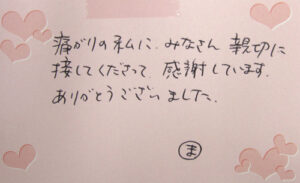 痛がりの私に、みなさん 親切に
接してくださって 感謝しています。
ありがとうございました。
ま